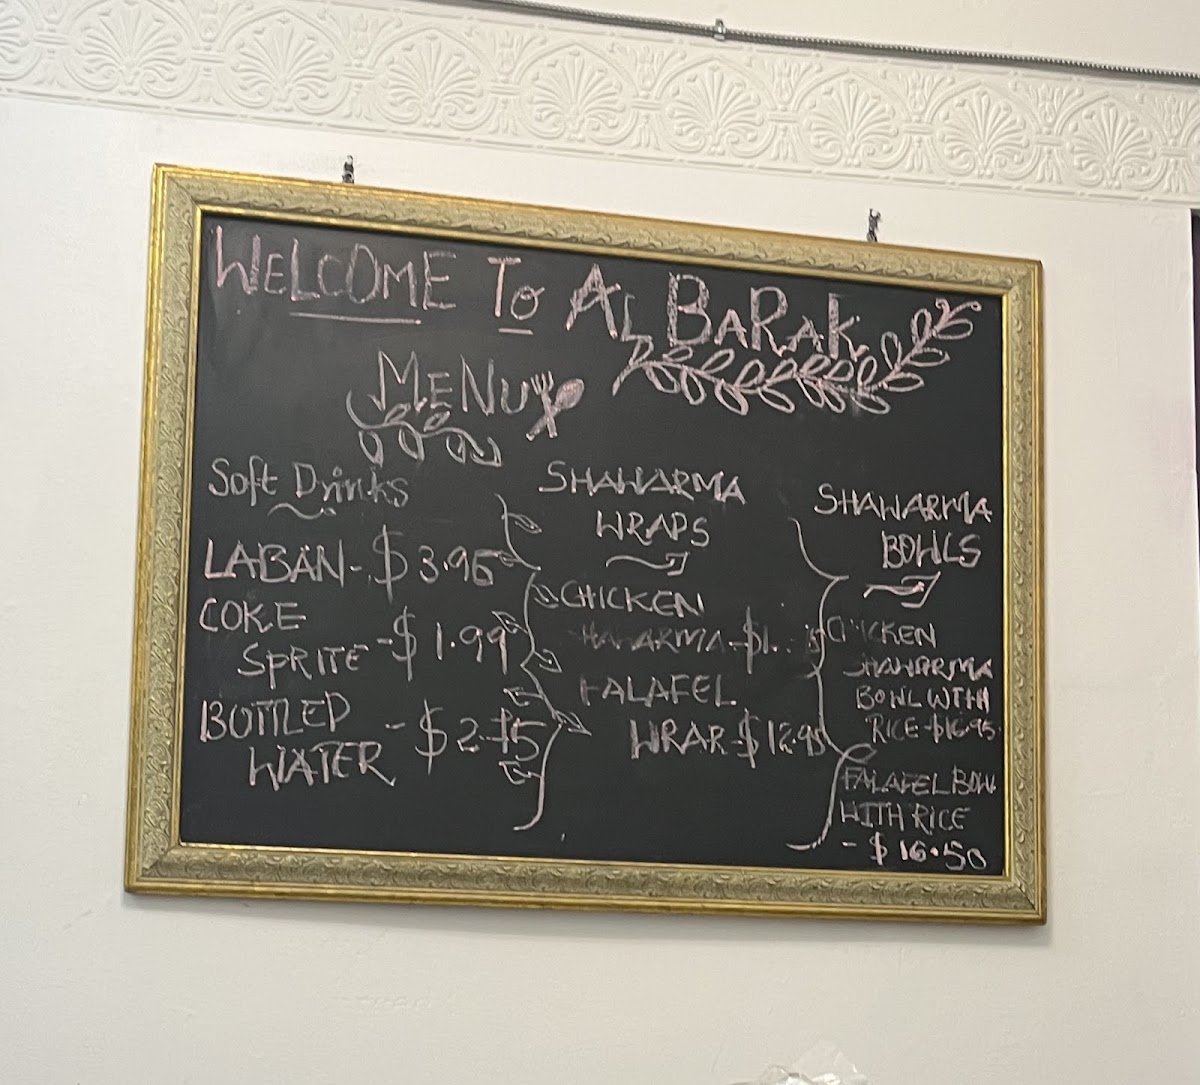 WELCOME TO AL BARAK
MENU
Soft Drinks
LABAN - $3.95
COKE
SPRITE - $1.99
BOTTLED
WATER - $2.
SHAWARMA
WRAPS
CHICKEN
SHAWARMA - $1
FALAFEL
WRAP - $12.95
SHAWARMA
BOWLS
CHICKEN
SHAWARMA
BOWL WITH
RICE - $16.95
FALAFEL BOWL
WITH RICE
- $16.50